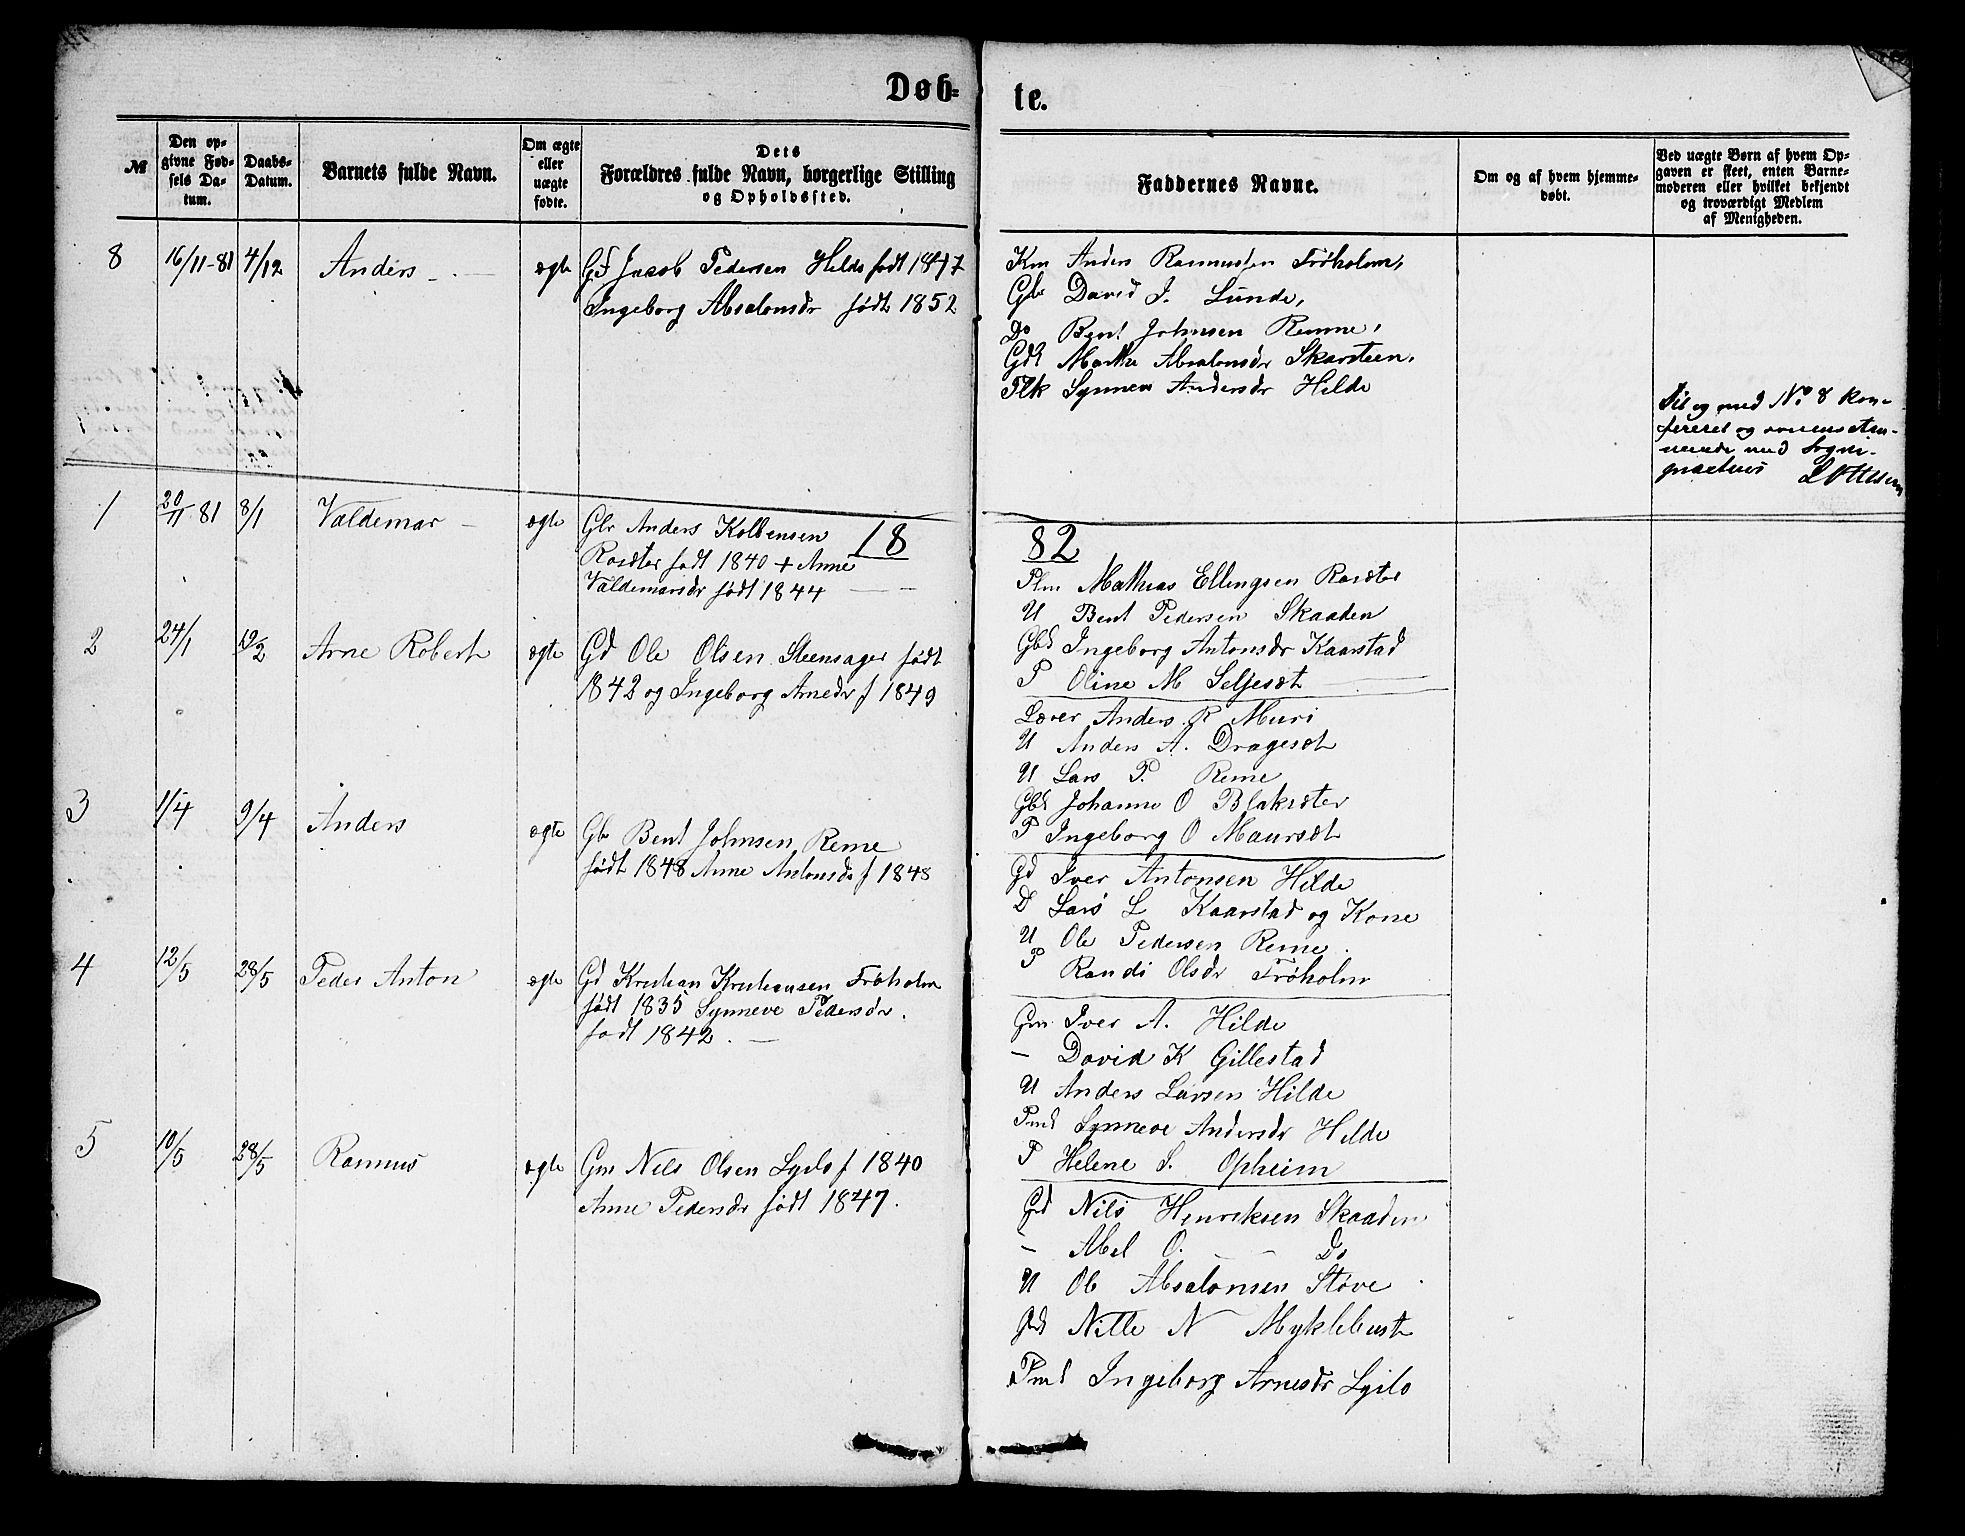 Døb-
te.
№
Den op-
givne Fød-
sels Da-
tum.
Daabs-
Datum.
Barnets fulde Navn.
Om ægte
eller
uægte
fødte.
Dets
Forældres fulde Navn, borgerlige Stilling
og Opholdssted.
Faddernes Navne.
Om og af hvem hjemme-
døbt.
Ved uægte Børn af hvem Op-
gaven er skeet, enten Barne-
moderen eller hvilket bekjendt
og troværdigt Medlem
af Menigheden.
8 16/11-81 4/12 Anders ægte
Jacob Pedersen Hilde født 1847
Ingeborg Absalonsdr født 1852
Km Anders Rasmussen Frøholm,
Gbr David J. Lunde,
Do Bent Johnsen Remme,
Marthe Absalonsdr Skarsteen,
Flk Synneva Andersdr Hilde
Til og med No. 8 kon-
fereret og overensstem-
mende med Sogne-
1 20/11 81 8/1 Valdemar ægte
Gbr Anders Kolbensen
Rosæter født 1840 + Anne
Valdemarsdr født 1844
18
82
Plm Mathias Ellingsen Rosæter
U Bent Pedersen Skaaden
Gbd Ingeborg Antonsdr Kaarstad
P Oline M Seljesæt
2 24/1 19/2 Arne Robert ægte
Gd Ole Olsen Steensager født
1842 og Ingeborg Arnedr f 1849
Lærer Anders R Muri
U Anders A. Dragesæt
U Lars P. Reme
Gbd Johanne O Blaksæter
P Ingeborg O Maursæt
3 1/4 9/4 Anders ægte
Gb Bent Johnsen Reme
født 1848 Anne Antonsdr f 1848
Gd Iver Antonsen Hilde
D Lars L Kaarstad og Kone
U Ole Pedersen Reme.
P Randi Olsdr Frøholm
4 12/5 28/5 Peder Anton ægte
Gd Kristian Kristiansen Frøholm
født 1835 Synneve Pedersdr.
født 1842.
Gm Iver A. Hilde
- David K Gillestad
U Anders Larsen Hilde
Pmd Synneve Andersdr Hilde
P Helene S. Opheim
5 10/5 28/5 Rasmus ægte
Gm Nils Olsen Lyslo f 1840
Anne Pedersdr født 1847.
Gd Nils Henriksen Skaaden
- Abel O. - Do
U Ole Absalonsen Støve
Nille N Myklebust
Pmd Ingeborg Arnesdr Lyslo